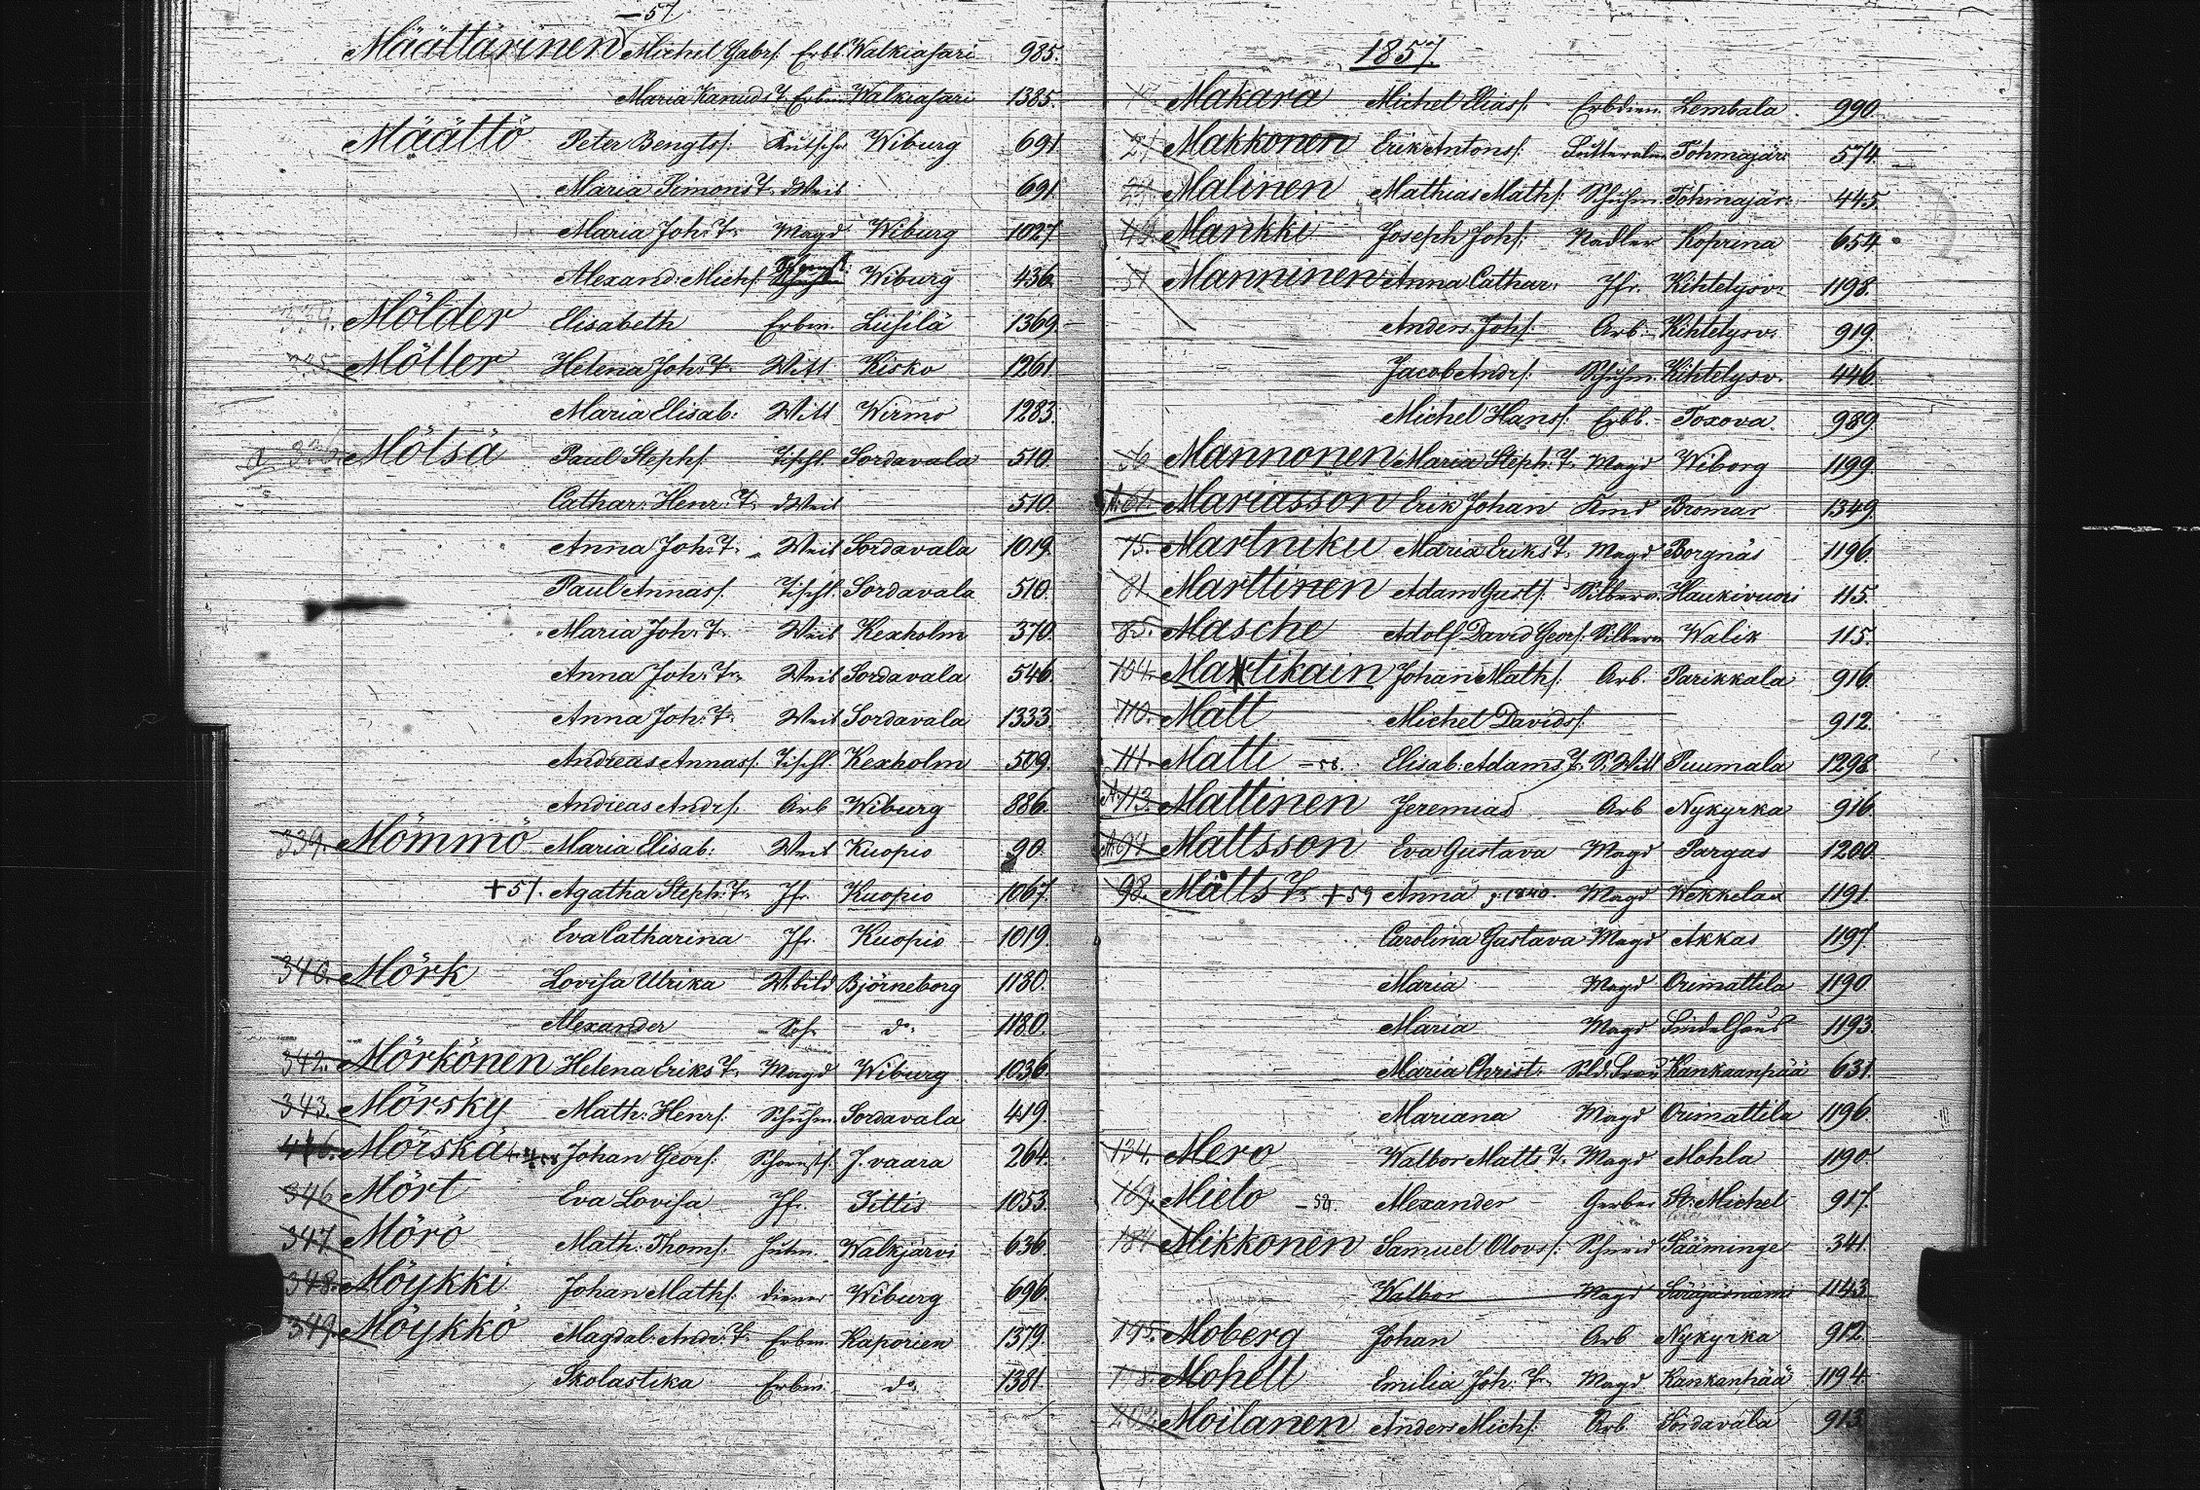 —57
Määttärinen Michel Gabrs: Erbb. Walkiasari 985.
Maria Kanuds T. Erbm. Walkiasari 1385.
Määttö Peter Bengtss: Kutscher Wiburg 691
Maria Simons T. dWeib 691
Maria Joh: T. Magd Wiburg 1027
Alexand: Michs: Wiburg 436.
Mölder Elisabeth Erbm. Liisilä 1369.
Möller Helena Joh: T. Witt Kisko 1261.
Maria Elisab: Witt Wirmo 1283.
Mötsä Paul Stephs: Tischl. Sordavala 510.
Cathar: Henr: T. dWeib 510.
Anna Joh: T. Weib Sordavala 1019.
Paul Annass: Tischl. Sordavala 510.
Maria Joh: T. Weib Kexholm 370.
Anna Joh: T. Weib Sordavala 546.
Anna Joh: T. Weib Sordavala 1333.
Andreas Annass: Tischl. Kexholm 509.
Andreas Andrs: Arb Wiburg 886.
339. Mömmö Maria Elisab: Weib Kuopio 90.
+57. Agatha Steph: T. Jfr. Kuopio 1067.
Eva Catharina Jfr. Kuopio 1019.
340. Mörk Lovisa Ulrika Björneborg 1180.
Alexander Soh do: 1180.
342. Mörkönen Helena Eriks T. Magd Wiburg 1036.
343. Mörsky Math: Henrs: Schuhm. Sordavala 419.
Mörskä Johan Geors: Schornstf. J. vaara 264.
346 Mört Eva Lovisa Jfr. Jittis 1053.
347 Mörö Math: Thoms: Hutm. Walkjärvi 636.
348. Möykki Johan Maths: diener Wiburg 696.
349. Möykkö Magdal: Andr: T. Erbm. Kaporien 1379.
Skolastika Erbm. do: 1381.
1857.
Makara Michel Eliass: Erbdien. Lembala 990.
21 Makkonen Erik Antons: Tohmajär: 574.
Malinen Mathias Maths: Schuhm. Tohmajär: 445.
Mankki Joseph Johs: Nadler Koprina 654.
51 Manninen Anna Cathar: Jfr. Kihtelysv: 1198.
Anders Johs: Arb. Kihtelysv: 919.
Jacob Andrs: Schuhm. Kihtelysv. 446.
Michel Hanss: Erbb. Toxova. 989.
56 Mannonen Maria Steph: T. Magd Wiborg 1199.
A. 61. Mariasson Erik Johan Kind Bromar 1349.
75. Martniku Maria Eriks T. Magd Borgnäs 1196.
81 Marttinen Adam Gusts: Silberar. Haukivuori 115.
85. Masche Adolf David Geors: Silberar Walik 115.
104. Martikain Johan Maths: Arb. Parikkala 916.
110. Matt Michel Davids: 912.
111. Matti —58. Elisab: Adams T. S. Witt Puumala 1298.
A. 113. Mattinen Jeremias Arb Nykyrka 916.
A. 94 Mattsson Eva Gustava Magd Pargas 1200.
98. Matts Tr. +59 Anna g. 1840. Magd Wekkelax 1191.
Carolina Gustava Magd Akkas 1197.
Maria Magd Orimattila 1190.
Maria Magd Sindelhaus 1193.
Maria Christ. Sld. Frau Kankaanpää 631.
Mariana Magd Orimattila 1196.
134. Mero Walbor Matts T. Magd Mohla 1190.
169. Mielo —58. Alexander Gerber St. Michel 917.
184 Mikkonen Samuel Olovss: Schneid Sääminge 341.
Walbor Magd 1143.
195. Moberg Johan Arb Nykyrka 912.
Mohell Emilia Joh: Tr. Magd Kankanpää 1194.
202. Moilanen Anders Michs: Arb. Sordavala 913.